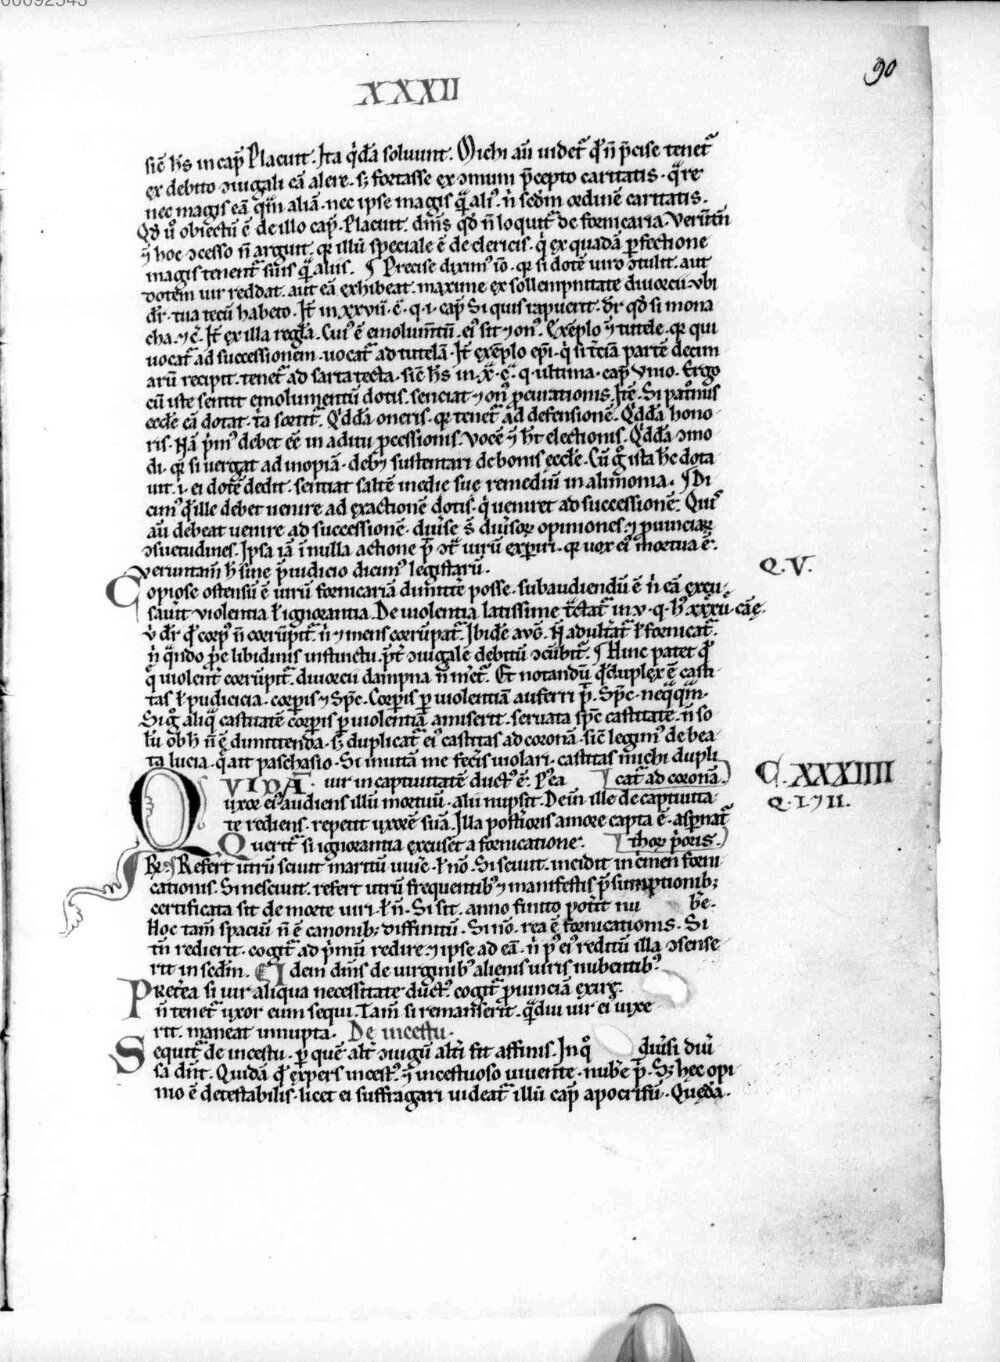 00092343
90
XXXII
siē h̄s in cap̄ Placuit. Ita q̇dā soluunt. Michi aū uidet᷑ q̄ n̄ p̄cise tenet᷑
ex debito ɔiugali eā alere. s; fortasse ex ɔmuni p̄cepto caritatis. q̄re
nec magis eā q̄m aliā. nec ipse magis q̄ aliꝰ. n̄ sedm̄ ordinē caritatis.
Qd̄ ū obiectū ē de illo cap̄. Placuit. dm̄s qd̄ n̄ loquit᷑ de fornicaria. Verūtn̄
hoc ɔcesso n̄ arguit. qꝛ illū speciale ē de clericis. q̇ ex quadā ꝑfectione
magis tenent᷑ suis q̄ aliis. ¶ Precise diximꝰ iō. qꝛ si dotē uiro ɔtulit. aut
dotem uir reddat. aut eā exhibeat. maxime ex sollempnitate diuorcii. ubi
dr̄. tua tecū habeto. It̄ in xxvii. c̄. q. i. cap̄ Si quis rapuerit. dr̄ qd̄ si mona
cha ⁊ c̄. It̄ ex illa regl̄a. Cuiꝰ ē emolum̄tū. eiꝰ sit ⁊ onꝰ. Exēplo tutele. qꝛ qui
uocat᷑ ad successionem. uocat᷑ ad tutelā. It̄ exēplo ep̄i. q̇ si t̄ciā partē decim
arū recipit. tenet᷑ ad sarta tecta. siē h̄s in x. c̄. q. ultima. cap̄ Vnio. Ergo
cū iste sentit emolumentū dotis. senciat ⁊ onꝰ ꝓcurationis. Itē. Si patronus
eccłe eā dotat. t̄a sortit᷑. Q̇dā oneris. qꝛ tenet᷑ ad defensionē. Q̇dā hono
ris. Nā ṗmꝰ debet eē in aditu ꝓcessionis. Vocē h̄t electionis. Q̇dā ɔmo
di. qꝛ si uergat ad inopiā. deb; sustentari de bonis eccłe. Cū g̊ ista h̄c dota
uit. i. ei dotē dedit. sentiat saltē inedie sue remediū in alimonia. ¶ Di
cimꝰ q̄ ille debet uenire ad exactionē dotis. q̇ ueniret ad successionē. Quiꝰ
aū debeat uenire ad successionē. diuise s̄ diuisoꝝ opiniones. ⁊ ꝓuinciaꝝ
ɔsuetudines. Ipsa iā ī nulla actione p̄ ɔt᷑ uirū experiri. qꝛ uox eiꝰ mortua ē.
Veruntam̄ h̄ sine p̄iudicio dicimꝰ legistarū.
Q. V.
Copiose ostensū ē uirū fornicariā dimittē posse. subaudiendū ē n̄ eā excu
sauīt violentia ł ignorantia. De uiolentia latissime t̄ctat᷑ in. v. q. hꝰ xxxii. cāe.
v̇ dr̄ q̄ corpꝰ n̄ corrūpit᷑ n̄ ⁊ mens corrūpat᷑. Ibidē aug̊. N̄ adult̄at᷑ ł fornicat᷑.
n̄ q̄ndo ꝓ̄e libidinis instinctu. p̄t᷑ ɔiugale debitū ɔcūbit᷑. ¶ Hinc patet q̄
q̇ violent᷑ corrūpit᷑. diuorcii dampna n̄ m̄et᷑. Et notandū q̄ duplex ē casti
tas ł pudicicia. corꝑis ⁊ sp̄c. Corꝑis ꝑ uiolentiā auferri p̄. Sp̄c. neq̄q̄m
Si g̊ aliq̄ castitatē corꝑis ꝑ uiolentiā amiserit. seruata sp̄c castitate. n̄ so
lū ob h̄ n̄ ē dimittenda. s; duplicat᷑ eiꝰ castitas ad coronā. siē legimꝰ de bea
ta lucia. q̄ ait paschasio. Si inuitā me fec̄is uiolari. castitas m̄ichi dupli
cat᷑ ad coronā.
C. XXXIIII
Q. I ⁊ II.
QVIDĀ. uir in captiuitatē ductꝰ ē. P̄ea
uxor eiꝰ audiens illū mortuū. alii nupsit. Dein̄ ille de captiuita
te rediens. repetit uxorē suā. Illa post̄ioris amore capta ē. asp̄nat᷑
thoꝝ ṗoris.
Querit᷑ si ignorantia excuset a fornicatione.
R̄. Refert utrū sciuit maritū uiuē. ł nō. Si sciuit. incidit in c̄men forni
cationis. Si nesciuit. refert utrū frequentibꝰ ⁊ manifestis p̄sumptionib;
certificata sit de morte uiri. ł n̄. Si sit. anno finito pot̄it nu be.
Hoc tam̄ spaciū n̄ ē canonib; diffinitū. Si nō. rea ē fornicationis. Si
tn̄ redierit. cogit᷑ ad ṗmū redire. ⁊ ipse ad eā. n̄ pꝰ eiꝰ reditū illa ɔsense
rit in sedm̄. Idem dm̄s de uirginibꝰ alienis uiris nubentibꝰ.
Pret̄ea si uir aliqua necessitate ductꝰ. cogit᷑ ꝓuinciā exire.
n̄ tenet᷑ uxor eum sequi. Tam̄ si remanserit. q̄diu uir ei uixe
rit. maneat innupta. De incestu.
Sequit᷑ de incestu. ꝑ quē alt᷑ ɔiugū alt̄i fit affinis. In q̊ diūsi diū
sa dn̄t. Quidā q̄ expers incestꝰ incestuoso uiuente. nub̄e p̄. S; hec opi
nio ē detestabilis. licet ei suffragari uideat᷑ illū cap̄ apocrifū. Quedā.